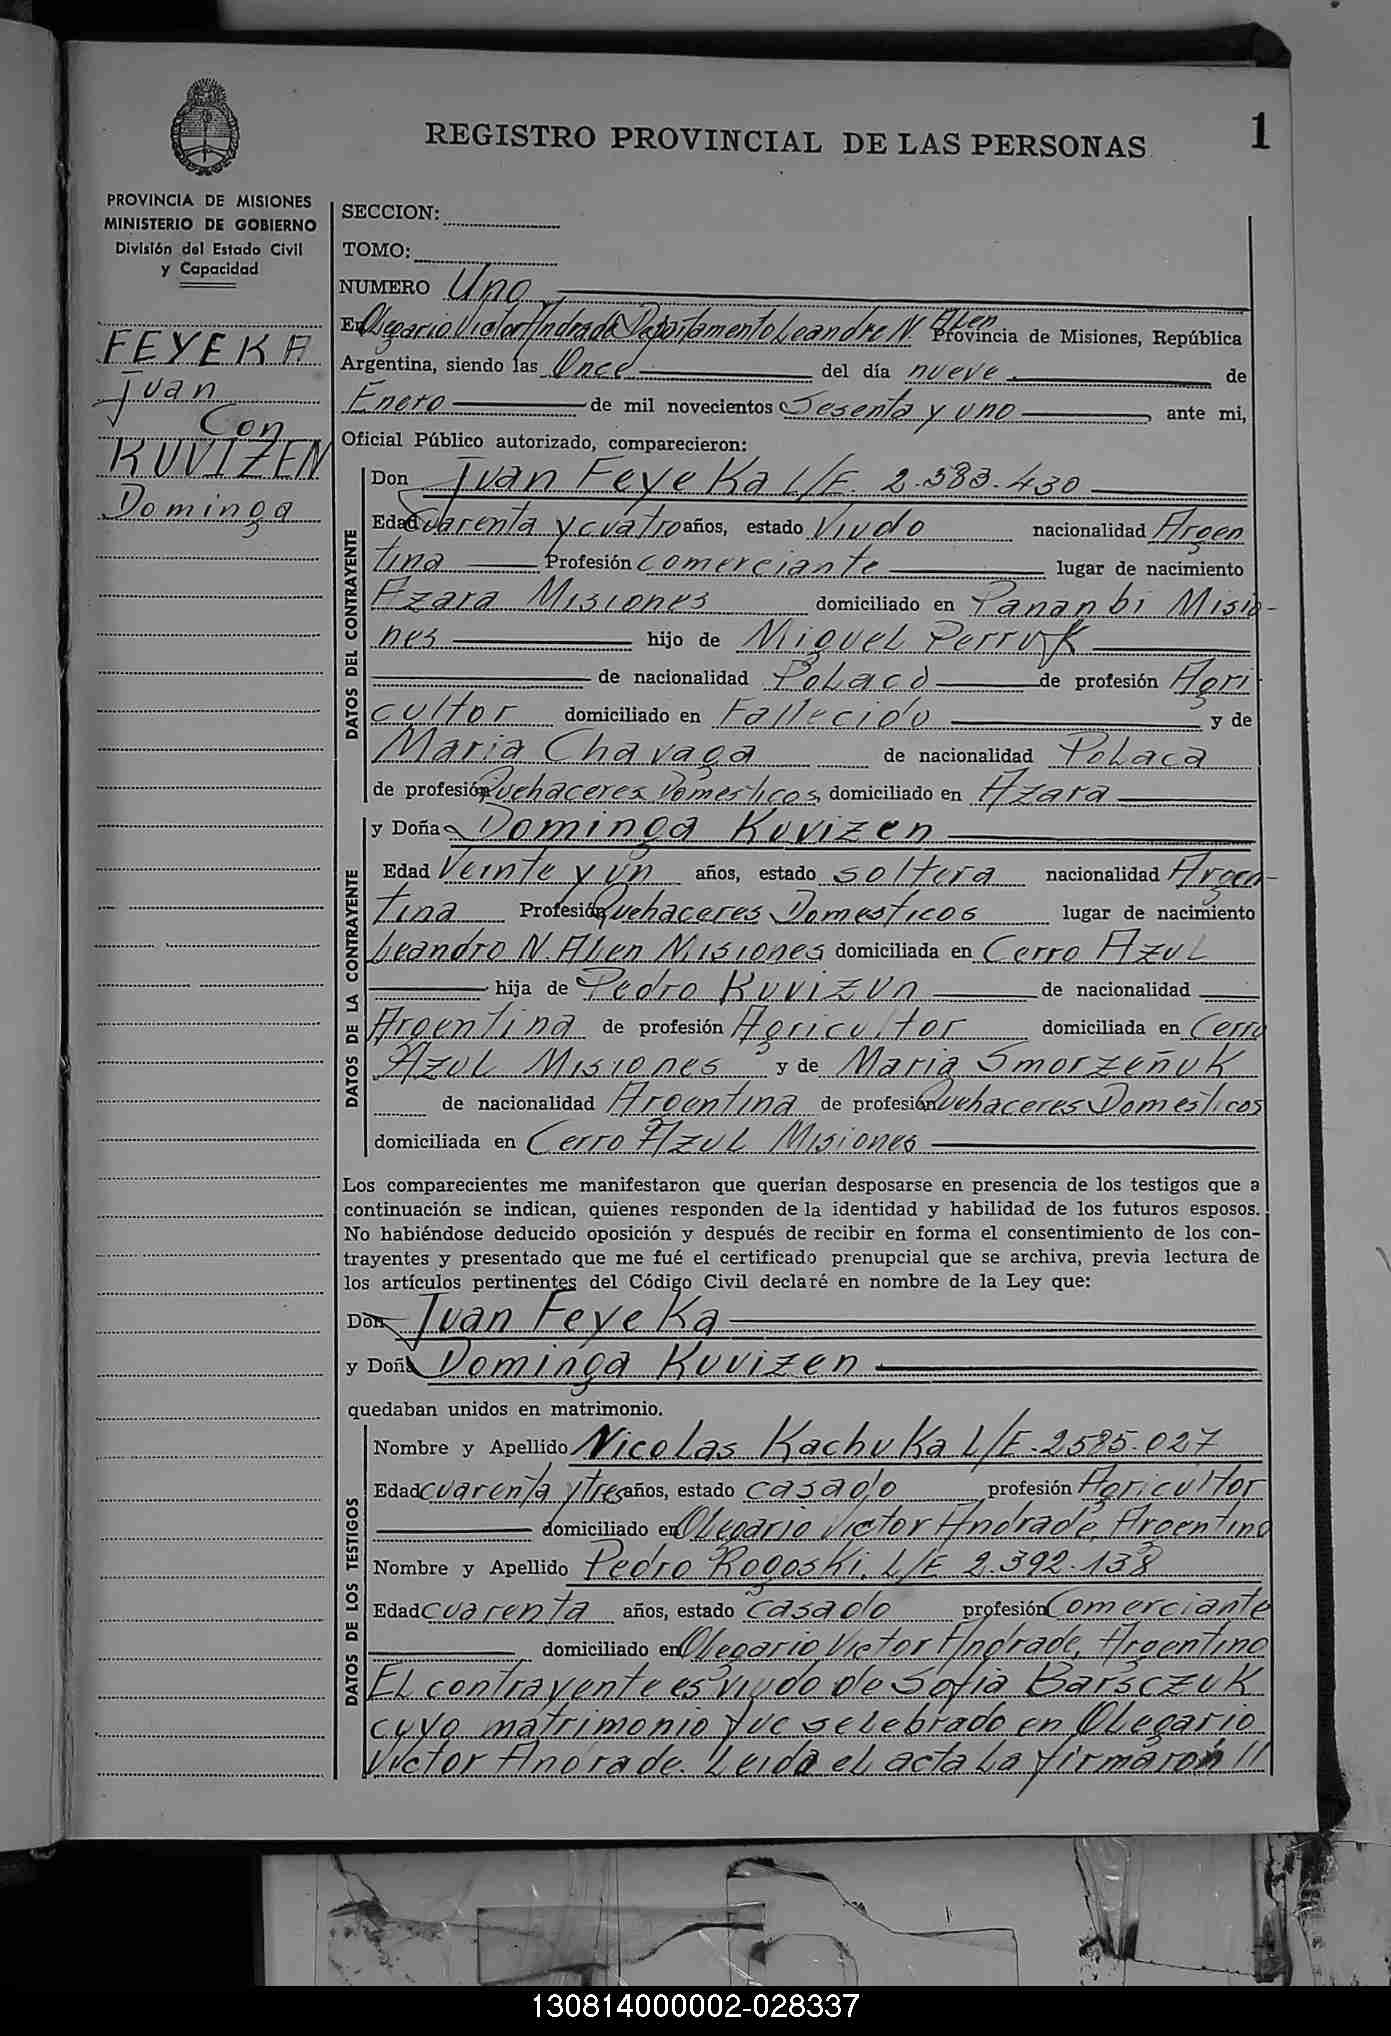 REGISTRO PROVINCIAL DE LAS PERSONAS
1
PROVINCIA DE MISIONES
MINISTERIO DE GOBIERNO
División del Estado Civil
y Capacidad
FEYEKA
Juan
Con
KUVIZEN
Dominga
SECCION:
TOMO:
NUMERO Uno
En Olegario Victor Andrade Departamento Leandro N. Alen Provincia de Misiones, República
Argentina, siendo las Once del día nueve de
Enero de mil novecientos Sesenta y uno ante mi,
Oficial Público autorizado, comparecieron:
DATOS DEL CONTRAYENTE
Don Juan Feyeka L/E. 2.383.430
Edad Cuarenta y cuatro años, estado Viudo nacionalidad Argen
tina Profesión comerciante lugar de nacimiento
Azara Misiones domiciliado en Pananbi Misio-
nes hijo de Miguel Perruk
de nacionalidad Polaco de profesión Agri
cultor domiciliado en Fallecido y de
Maria Chavaga de nacionalidad Polaca
de profesión Quehaceres Domesticos domiciliado en Azara
DATOS DE LA CONTRAYENTE
y Doña Dominga Kuvizen
Edad Veinte y un años, estado soltera nacionalidad Argen-
tina Profesión Quehaceres Domesticos lugar de nacimiento
Leandro N. Alen Misiones domiciliada en Cerro Azul
hija de Pedro Kuvizun de nacionalidad
Argentina de profesión Agricultor domiciliada en Cerro
Azul Misiones y de Maria Smorzeñuk
de nacionalidad Argentina de profesión Quehaceres Domesticos
domiciliada en Cerro Azul Misiones
Los comparecientes me manifestaron que querían desposarse en presencia de los testigos que a
continuación se indican, quienes responden de la identidad y habilidad de los futuros esposos.
No habiéndose deducido oposición y después de recibir en forma el consentimiento de los con-
trayentes y presentado que me fué el certificado prenupcial que se archiva, previa lectura de
los artículos pertinentes del Código Civil declaré en nombre de la Ley que:
Don Juan Feyeka
y Doña Dominga Kuvizen
quedaban unidos en matrimonio.
DATOS DE LOS TESTIGOS
Nombre y Apellido Nicolas Kachuka L/E. 2585.027
Edad cuarenta y tres años, estado casado profesión Agricultor
domiciliado en Olegario Victor Andrade, Argentino
Nombre y Apellido Pedro Rogoski. L/E 2.392.138
Edad cuarenta años, estado casado profesión Comerciante
domiciliado en Olegario Victor Andrade, Argentino
El contrayente es viudo de Sofia Barsczuk
cuyo matrimonio fue selebrado en Olegario
Victor Andrade. Leida el acta la firmaron //
130814000002-028337